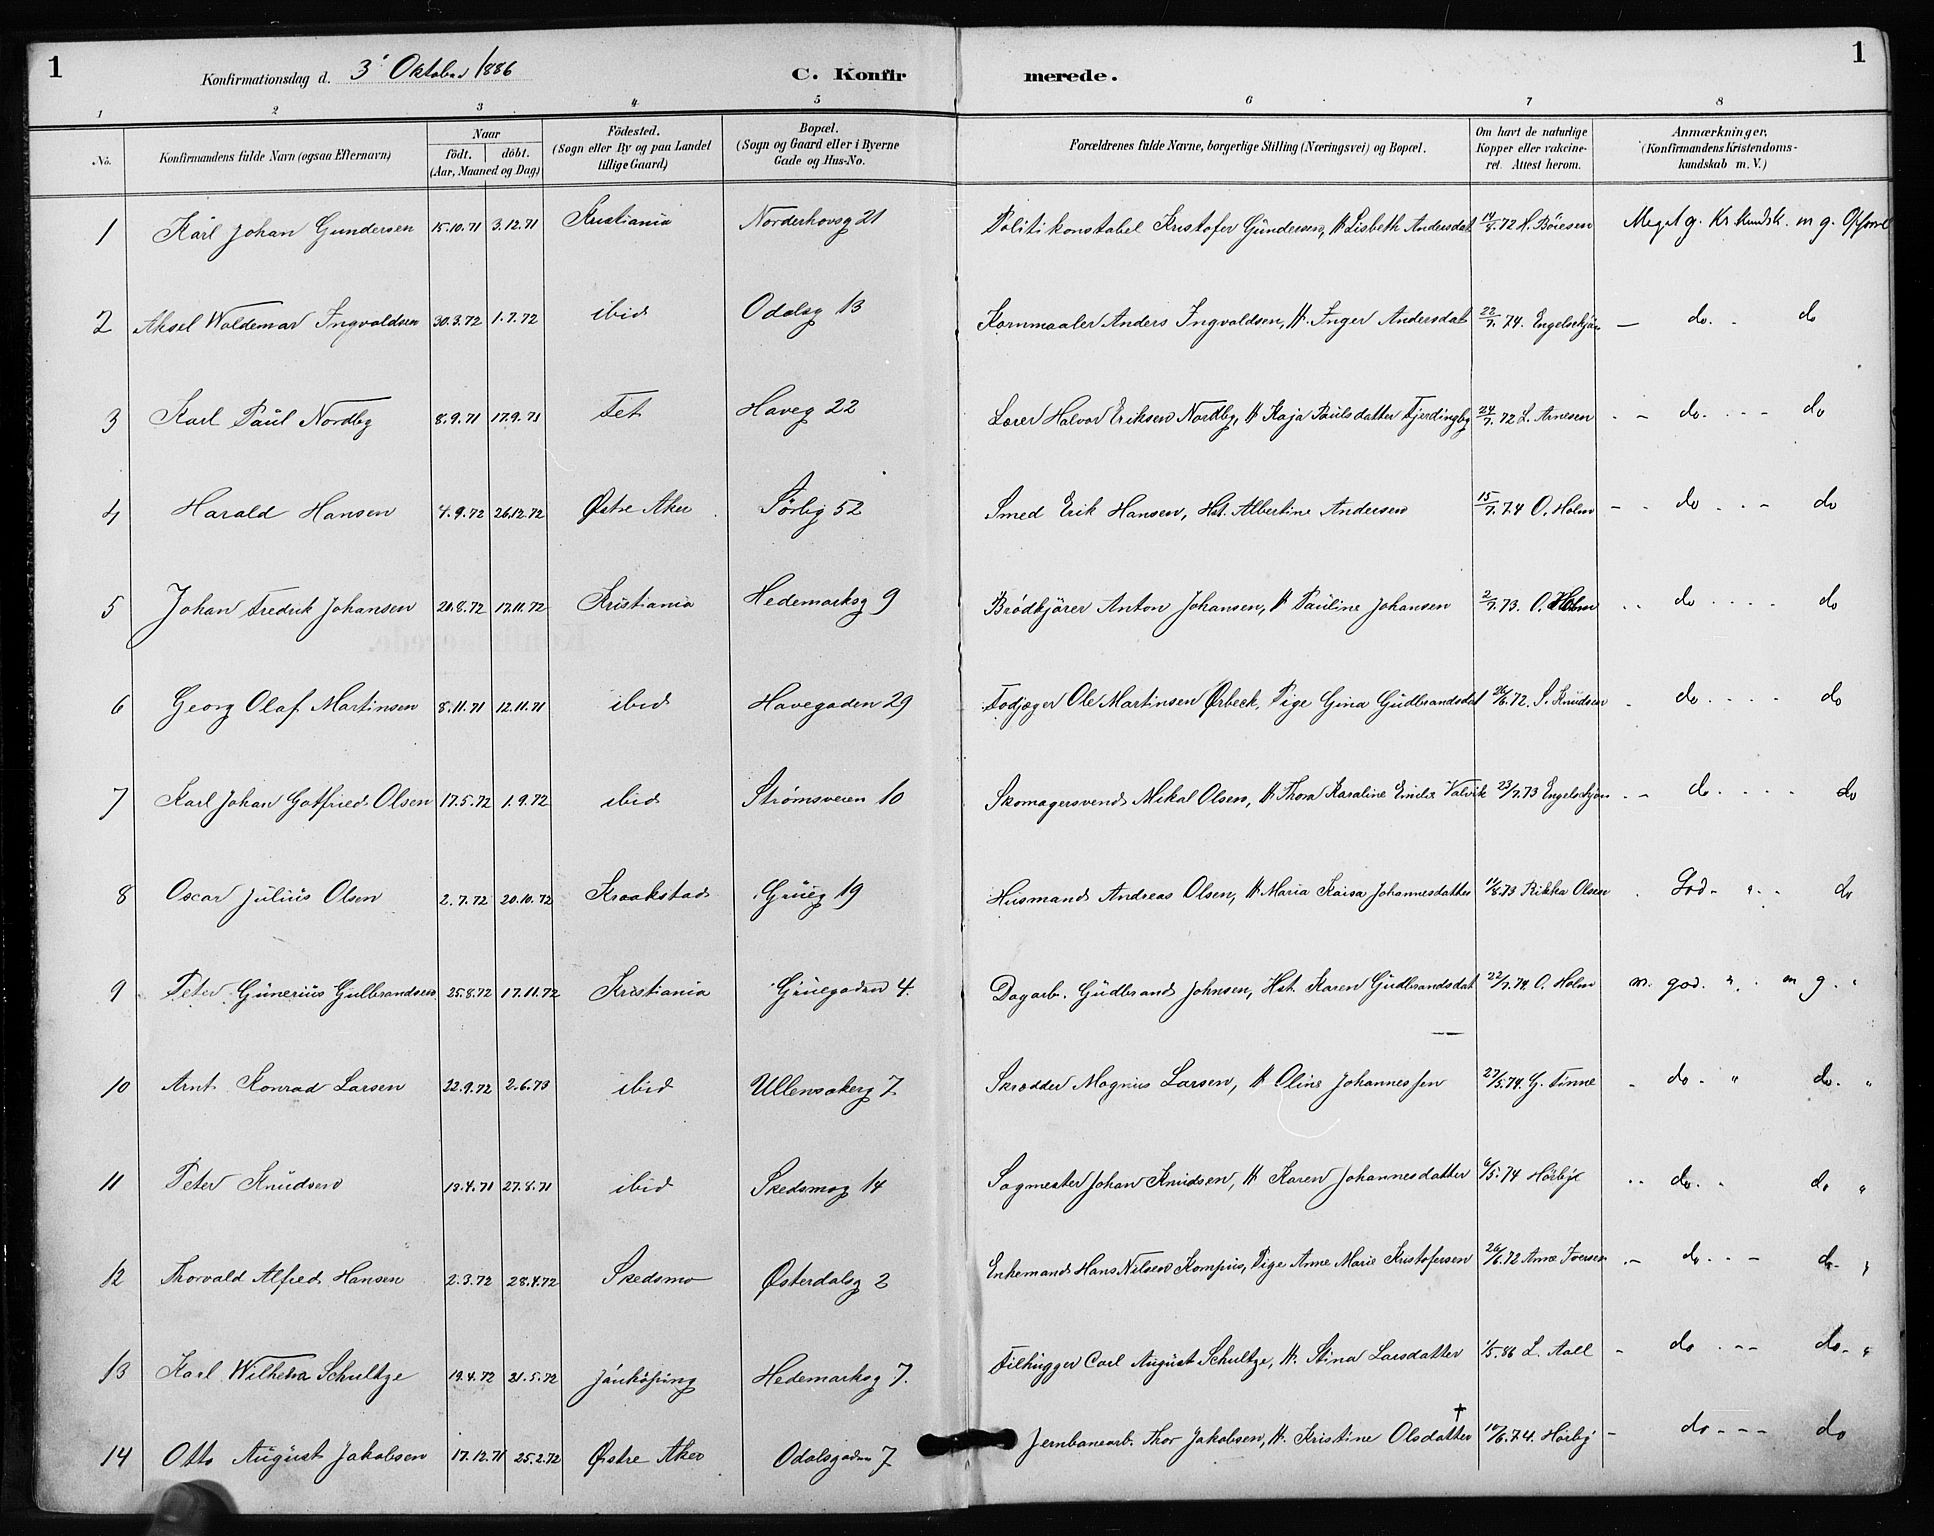 1
Konfirmationsdag d. 3' Oktober 1886
C. Konfirmerede.
1
1 2 3 4 5 6 7 8
No. | Konfirmandens fulde Navn (ogsaa Efternavn) | Naar födt. | döbt. (Aar, Maaned og Dag) | Födested. (Sogn eller By og paa Landet tillige Gaard) | Bopæl. (Sogn og Gaard eller i Byerne Gade og Hus-No. | Forældrenes fulde Navne, borgerlige Stilling (Næringsvei) og Bopæl. | Om havt de naturlige Kopper eller vakcineret. Attest herom. | Anmærkninger, (Konfirmandens Kristendomskundskab m. V.)
1 Karl Johan Gundersen 15.10.71 3.12.71 Kristiania Norderhovsg 21 Politikonstabel Kristofer Gundersen, H Lisbeth Andersdat 14/8.72 H. Böiesen Meget g. Kr. kundsk. m g. Opförsel
2 Aksel Waldemar Ingvaldsen 30.3.72 1.7.72 ibid Odalsg 13 Kornmaaler Anders Ingvaldsen, H. Inger Andersdat 22/7.74. Engelschjön — do. - do
3 Karl Paul Nordby 8.9.71 17.9.71 Fet Haveg 22 Lærer Halvor Eriksen Nordby, H Kaja Paulsdatter Fjerdingby 24/7.72 L. Arnesen - - do. - - - do
4 Harald Hansen 4.9.72 26.12.72 Østre Aker Sörlig 52 Smed Erik Hansen, Hst. Albertine Andersen 15/7.74 O. Holm - - do - - - do
5 Johan Fredrik Johansen 20.8.72 17.11.72 Kristiania Hedemarksg 9 Brödkjörer Anton Johansen, H Pauline Johansen 2/7.73. O. Holm - - do - - - - do
6 Georg Olaf Martinsen 8.11.71 12.11.71 ibid Havegaden 29 Ole Martinsen Ørbeck, Pige Gina Gudbrandsdat 26/6.72. S. Knudsen - do - - - - do
7 Karl Johan Gotfried Olsen 17.5.72 1.9.72 ibid Strømsveien 10 Skomagersvend Mikal Olsen, H Thora Karaline Emilie Valvik 23/7.73 Engelschjön - - do - - - - do
8 Oscar Julius Olsen 2.7.72 20.10.72 Kraakstad Grüeg 19 Husmand Andreas Olsen, H Maria Kaisa Johannesdatter 11/8.73 Rikka Olsen - God - " - - do
9 Peter Gunerius Gulbrandsen 25.8.72 17.11.72 Kristiania Gruegaden 4. Dagarb. Gudbrand Johnsen, Hst. Karen Gudbrandsdat 22/7.74. O. Holm m. god. " . m g. "
10 Arnt Konrad Larsen 22.9.72 2.6.73 ibid Ullensakerg 7 Skrædder Magnus Larsen, H Oline Johannessen 27/5.74. G. Tinne - do - " do. "
11 Peter Knudsen 19.4.71 27.8.71 ibid Skedsmog 14 Sagmester Johan Knudsen, H Karen Johannesdatter 6/5.74 Hörbye - - do. - do "
12 Thorvald Alfred Hansen 2.3.72 28.4.72 Skedsmo Østerdalsg 2 Enkemand Hans Nilsen Kompus, Pige Anne Marie Kristofersen 26/6.72 Anne Iversen - - do - - - do - "
13 Karl Wilhelm Schultze 19.4.72 21.5.72 Jänköping Hedemarksg 7. Filhugger Carl August Schultze, H. Stina Larsdatter 1/5.86 L. Aall - do - - - do - "
14 Otto August Jakobsen 17.12.71 25.2.72 Østre Aker Odalsgaden 7 Jernbanearb. Thor Jakobsen, H. Kristine Olsdatter † 10/6.74. Hörbye - do - - - do